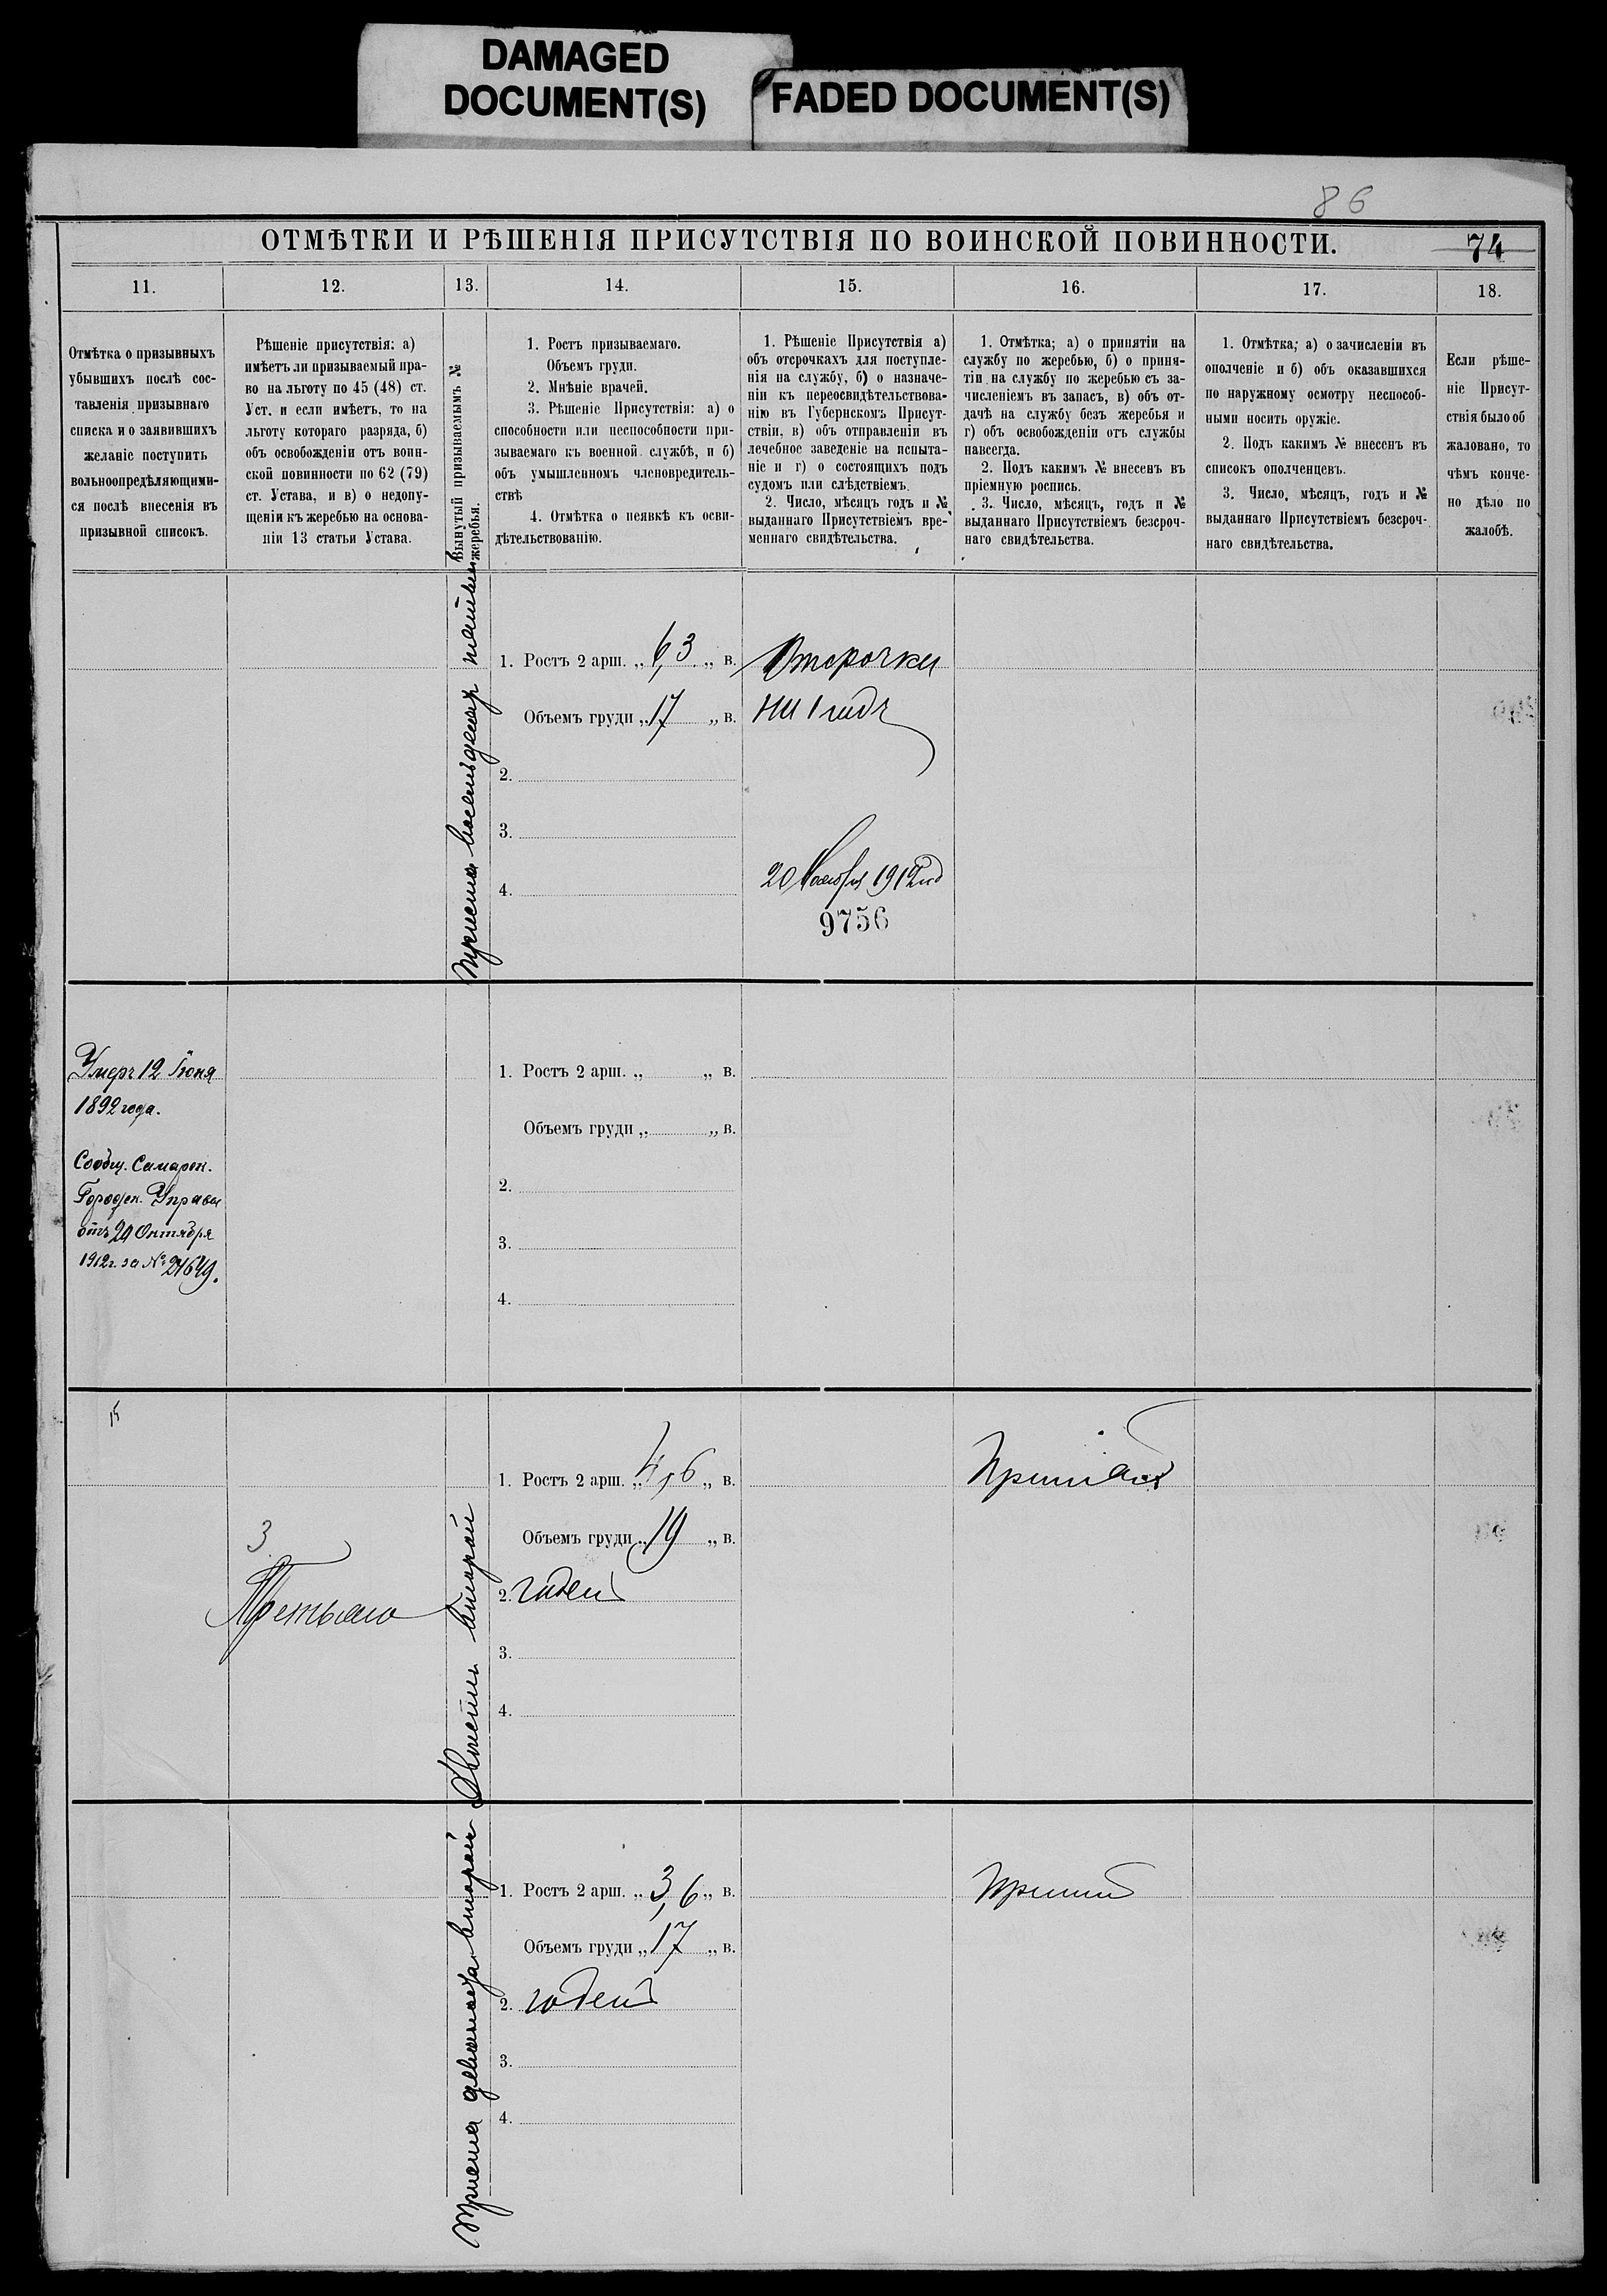 DAMAGED
DOCUMENT(S)
FADED DOCUMENT(S)
86
ОТМѢТКИ И РѢШЕНІЯ ПРИСУТСТВІЯ ПО ВОИНСКОЙ ПОВИННОСТИ.
74
11.
12.
13.
14.
15.
16.
17.
18.
Отмѣтка о призывныхъ
убывшихъ послѣ сос-
тавленія призывнаго
списка и о заявившихъ
желаніе поступить
вольноопредѣляющими-
ся послѣ внесенія въ
призывной списокъ.
Рѣшеніе присутствія: а)
имѣетъ ли призываемый пра-
во на льготу по 45 (48) ст.
Уст. и если имѣетъ, то на
льготу котораго разряда, б)
объ освобожденіи отъ воин-
ской повинности по 62 (79)
ст. Устава, и в) о недопу-
щеніи къ жеребью на основа-
ніи 13 статьи Устава.
Вынутый призываемымъ №
жеребья.
1. Ростъ призываемаго.
Объемъ груди.
2. Мнѣніе врачей.
3. Рѣшеніе Присутствія: а) о
способности или неспособности при-
зываемаго къ военной службѣ, и б)
объ умышленномъ членовредитель-
ствѣ
4. Отмѣтка о неявкѣ къ осви-
дѣтельствованію.
1. Рѣшеніе Присутствія а)
объ отсрочкахъ для поступле-
нія на службу, б) о назначе-
ніи къ переосвидѣтельствова-
нію въ Губернскомъ Присут-
ствіи, в) объ отправленіи въ
лечебное заведеніе на испыта-
ніе и г) о состоящихъ подъ
судомъ или слѣдствіемъ.
2. Число, мѣсяцъ годъ и №
выданнаго Присутствіемъ вре-
меннаго свидѣтельства.
1. Отмѣтка; а) о принятіи на
службу по жеребью, б) о приня-
тіи на службу по жеребью съ за-
численіемъ въ запасъ, в) объ от-
дачѣ на службу безъ жеребья и
г) объ освобожденіи отъ службы
навсегда.
2. Подъ какимъ № внесенъ въ
пріемную роспись.
3. Число, мѣсяцъ, годъ и №
выданнаго Присутствіемъ безсроч-
наго свидѣтельства.
1. Отмѣтка; а) о зачисленіи въ
ополченіе и б) объ оказавшихся
по наружному осмотру неспособ-
ными носить оружіе.
2. Подъ какимъ № внесенъ въ
списокъ ополченцевъ.
3. Число, мѣсяцъ, годъ и №
выданнаго Присутствіемъ безсроч-
наго свидѣтельства.
Если рѣше-
ніе Присут-
ствія было об
жаловано, то
чѣмъ конче-
но дѣло по
жалобѣ.
Триста восемьдесят
1. Ростъ 2 арш. „ 6,3 „ в.
Объемъ груди „ 17 „ в.
2.
3.
4.
Отсрочка
на 1 годъ
20 Ноября 1912 год
9756
Умеръ 12 Іюня
1892 года.
Сообщ. Самарск.
Городск. Управы
отъ 24 Октября
1912 г. за № 24649.
1. Ростъ 2 арш. „ „ в.
Объемъ груди „ „ в.
2.
3.
4.
3
Третьяго
Двѣсти второй
1. Ростъ 2 арш. „ 4,6 „ в.
Объемъ груди „ 19 „ в.
2. годен
3.
4.
Принят
Триста девяносто второй
1. Ростъ 2 арш. „ 3,6 „ в.
Объемъ груди „ 17 „ в.
2. годен
3.
4.
Принят